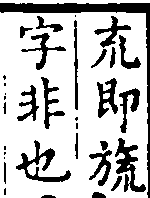 㐬即旒
字非也